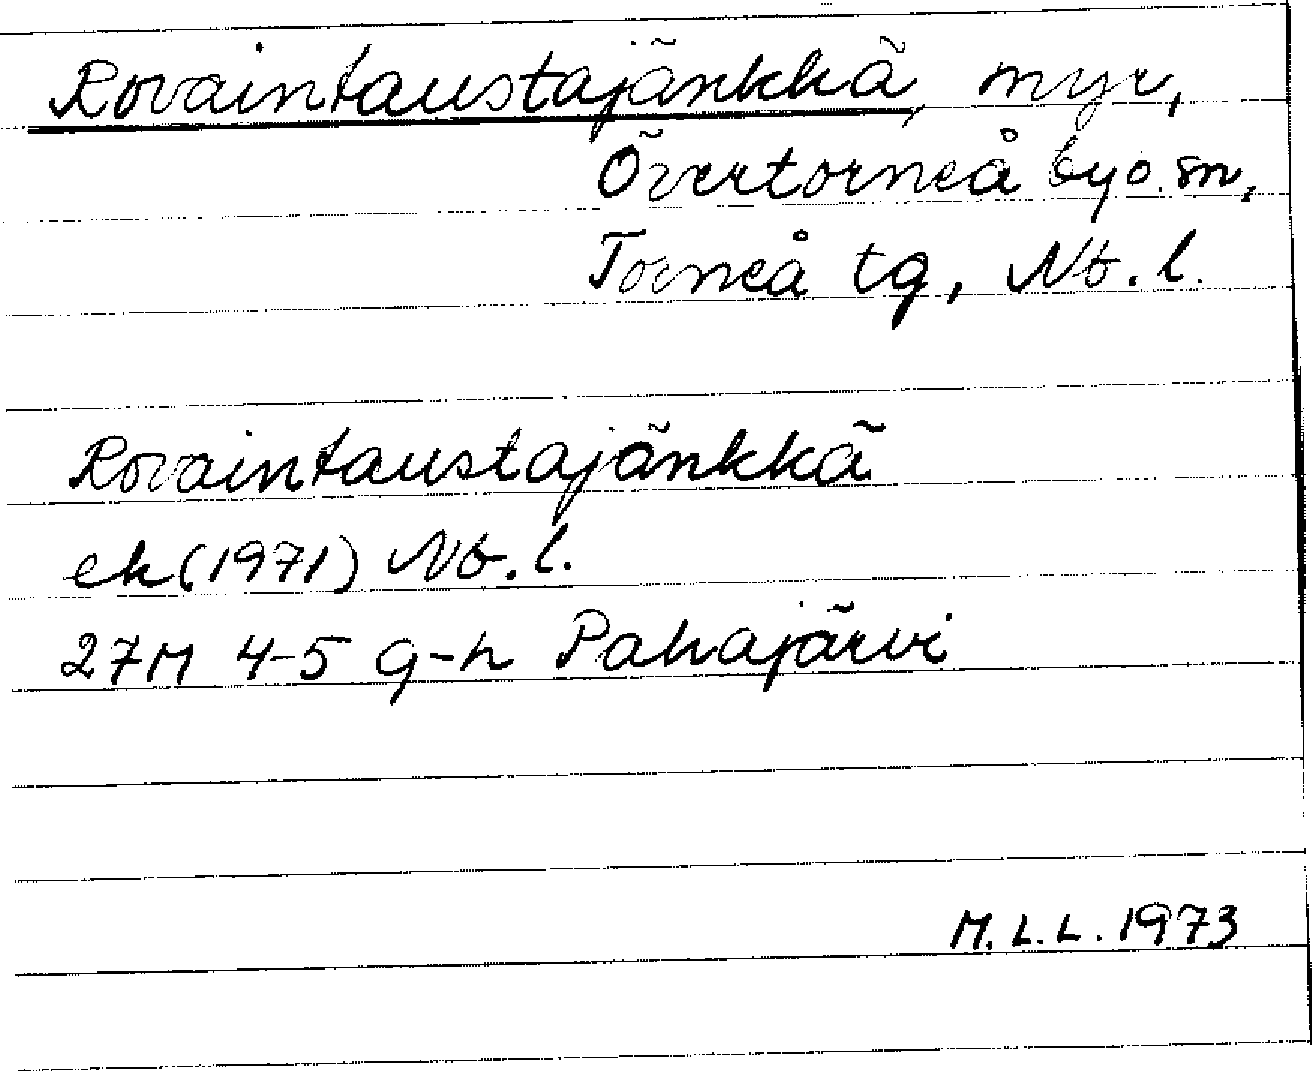 Rovaintaustajänkkä, myr,
Övertorneå by o. sn,
Torneå tg, Nb. l.
Rovaintaustajänkkä
ek (1971) Nb. l.
27M 4-5 g-h Pahajärvi
M.L.L. 1973